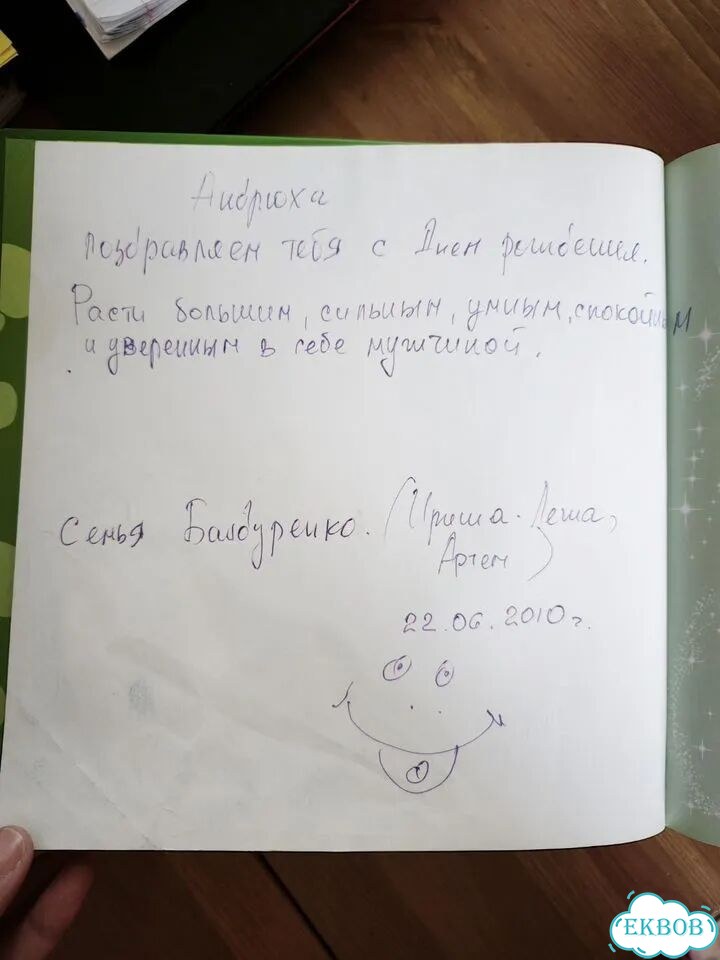 Андрюха
Поздравляем тебя с Днем рождения.
Расти большим, сильным, умным, спокойным
и уверенным в себе мужчиной.
Семья Балдуренко. (Ириша. Леша,
Артем)
22.06.2010г.
EKBOB